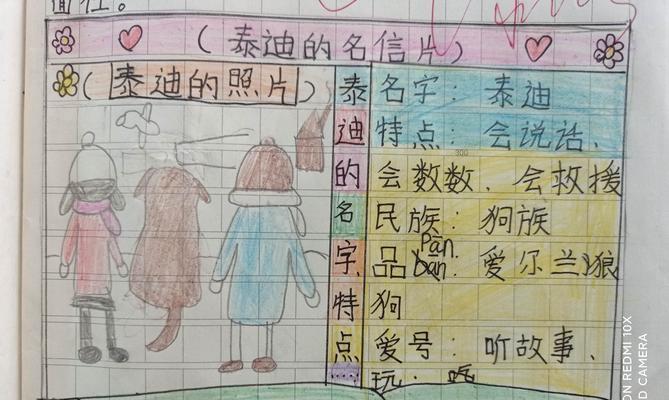 面往。
（泰迪的名信片）
（泰迪的照片）
泰迪的名字特点
名字：泰迪
特点：会说话、
会数数、会救援
民族：狗族
品 Pǎn bān：爱尔兰狼
狗
爱号：听故事、
玩、吃
300
ON REDMI 10X
D CAMERA